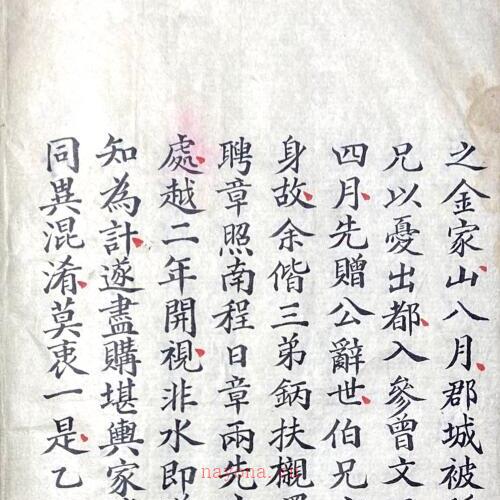 之金家山八月郡城被
兄以憂出都入參曾文
四月先贈公辭世伯兄
身故余偕三弟鈵扶櫬
聘章照南程日章兩先
處越二年開視非水即
知為計遂盡購堪輿家
同異混淆莫衷一是乙